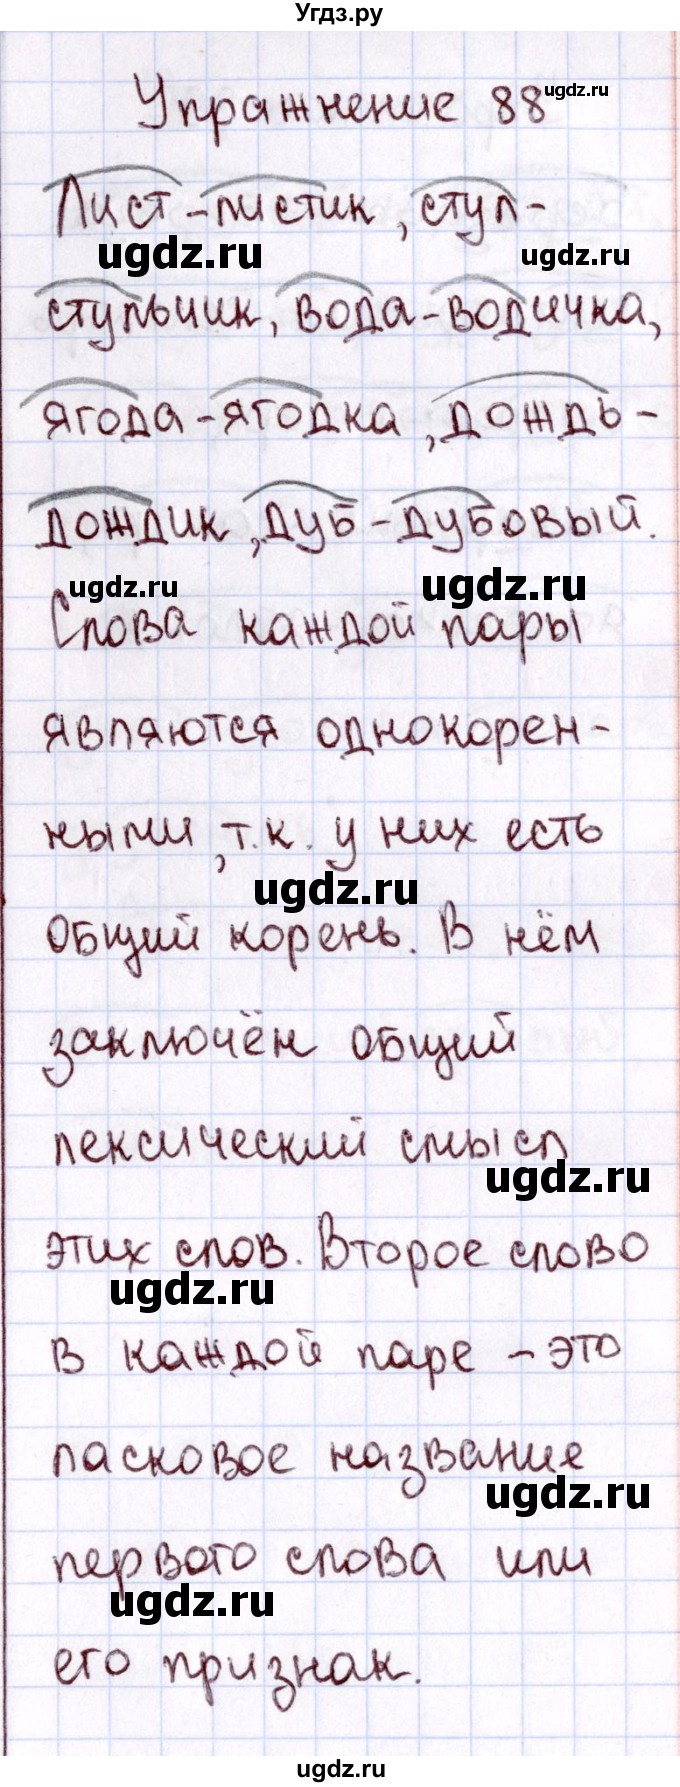 Угдз.ру
Упражнение 88
ugdz.ru
Лист-листик, стул-
ugdz.ru
ugdz.ru
стульчик, вода-водичка,
ягода-ягодка, дождь-
дождик, дуб-дубовый.
ugdz.ru
ugdz.ru
Слова каждой пары
являются однокорен-
ными, т.к. у них есть
ugdz.ru
общий корень. В нём
заключён общий
лексический смысл
ugdz.ru
этих слов. Второе слово
ugdz.ru
в каждой паре - это
ласковое название
ugdz.ru
первого слова или
ugdz.ru
его признак.
ugdz.ru